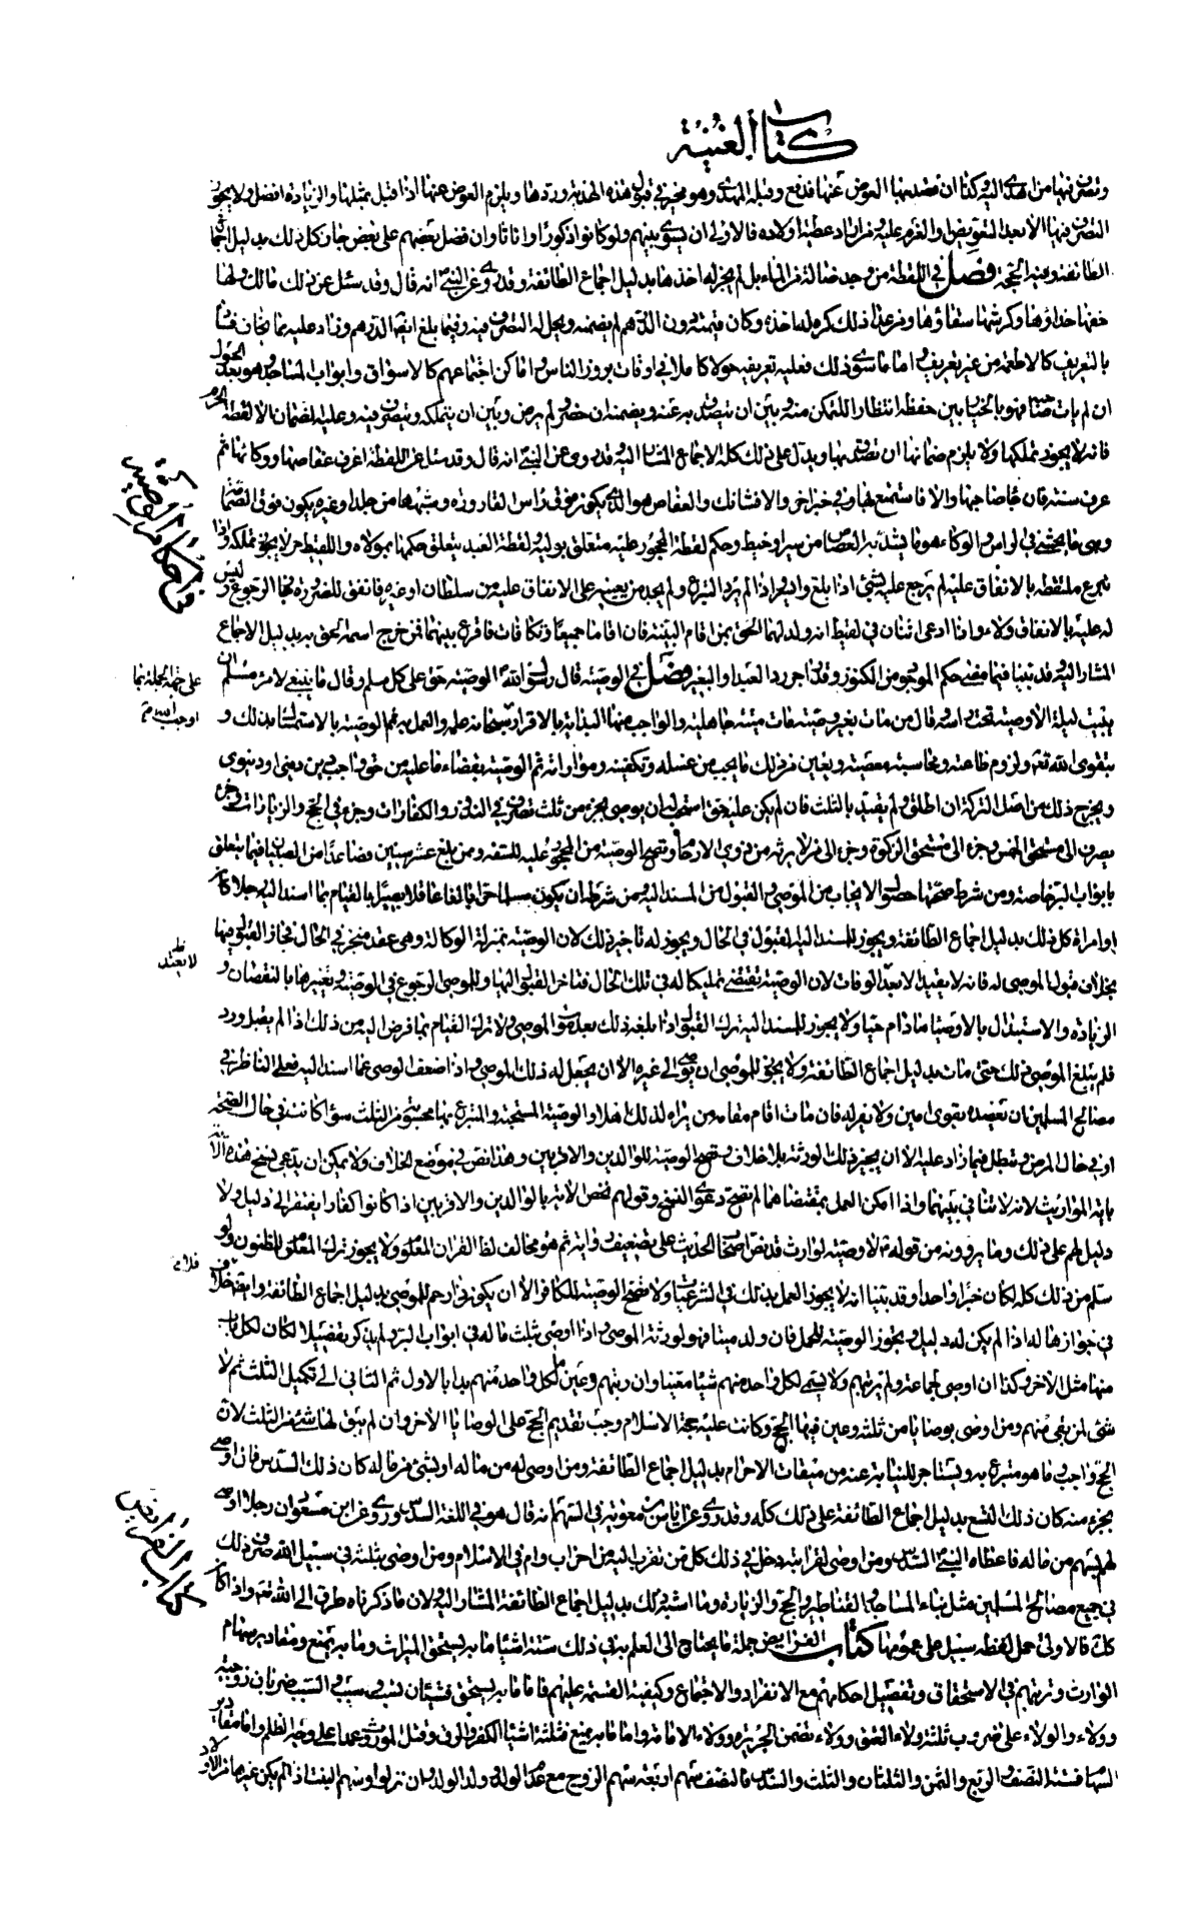 كتاب الغنية
وتصرف فيها من اهدى اليه وكذا ان قصد بها العوض عنها فدفع وقبله المهدى وهو مخير في قبول هذه الهدية وردها ويلزم العوض عنها اذا قبل بمثلها والزيادة افضل ولا يجوز
التصرف فيها الا بعد التعويض او العزم عليه ومن اراد عطية اولاده فالاولى ان يسوى بينهم ولو كانوا ذكورا واناثا وان فضل بعضهم على بعض جاز كل ذلك بدليل اجماع
الطائفة وفيه الحجة فصل في اللقطة من وجد ضالة من الابل لم يجز له اخذها بدليل اجماع الطائفة وقد روى عن النبي انه قال وقد سئل عن ذلك مالك ولها
خفها حذاؤها وكرشها سقاؤها ومن عدا ذلك كره له اخذه وكان قيمته دون الدرهم لم يضمنه ويحل له التصرف فيه وفيما بلغ الدرهم وزاد عليه مما يخاف فساده
بالتعريف كالاطعمة من غير تعريف واما ما سوى ذلك فعليه تعريفه حولا كاملا في اوقات بروز الناس واماكن اجتماعهم كالاسواق وابواب المساجد وهو بعد الحول
ان لم يات صاحبها فهو بالخيار بين حفظه انتظارا للتمكن منه وبين ان يتصدق به عنه ويضمنه ان حضر ولم يرض وبين ان يتملكه ويتصرف فيه وعليه الضمان الا لقطة الحرم
فانه لا يجوز تملكها ولا يلزم ضمانها ان تصدق بها ويدل على ذلك كله الاجماع المشار اليه وقد روى عن النبي انه قال وقد سئل عن اللقطة اعرف عفاصها ووكائها ثم
عرف سنة فان جاء صاحبها والا فاستمتع بها وفي خبر اخر والا فشانك والعفاص هو الذي يكون فوق راس القارورة وشبهها من جلد او غيره يكون فوق الصمام
وهي ما يحشى في الراس والوكاء هو ما يشد به العفاص من سير او خيط وحكم لقطة المحجور عليه متعلق بوليه ولقطة العبد يتعلق حكمها بمولاه واللقيط حر لا يجوز تملكه واذا
تبرع ملتقطه بالانفاق عليه لم يرجع عليه بشئ اذا بلغ وايسر واذا لم يرد التبرع ولم يجد من يعينه على الانفاق عليه من سلطان او غيره فانفق للضرورة جاز له الرجوع وليس
له عليه بالانفاق ولاء واذا ادعى اثنان في لقيط انه ولد لهما الحق بمن اقام البينة فان اقاما جميعا وتكافات فاقرع بينهما فمن خرج اسمه الحق به بدليل الاجماع
المشار اليه وقد بينا فيما مضى حكم الموجود من الكنوز وقد اجر رد العبد او البعير فصل في الوصية قال رسول الله الوصية حق على كل مسلم وقال ما ينبغي لامرء مسلم ان
يبيت ليلة الا ووصيته تحت راسه وقال من مات بغير وصية مات ميتة جاهلية والواجب منها البداية بالاقرار بالله سبحانه علمه والعمل به ثم الوصية بالاستمساك بذلك و
بتقوى الله تعالى ولزوم طاعته ومجانبة معصيته ويعين من ذلك ما يجب من غسله وتكفينه ومواراته ثم الوصية بقضاء ما عليه من حق واجب ديني او دنيوي
ويخرج ذلك من اصل التركة ان اطلق ولم يقيد بالثلث فان لم يكن عليه حق استحب ان يوصى بجزء من ثلثه يصرف في النذور والكفارات وجزء في الحج والزيارات وجزء
يصرف الى مستحق الخمس وجزء الى مستحق الزكوة وجزء الى من لا يرثه من ذوي الارحام وتصح الوصية من المحجور عليه للسفه ومن بلغ عشر سنين فصاعدا من الصبيان فيما يتعلق
بابواب البر خاصة ومن شرط صحتها حصول الايجاب من الموصى والقبول من المسند اليه ومن شرطه ان يكون مسلما حرا بالغا عاقلا بصيرا بالقيام بما اسند اليه رجلا كان
او امراة كل ذلك بدليل اجماع الطائفة ويجوز للمسند اليه القبول في الحال ويجوز له تاخير ذلك لان الوصية بمنزلة الوكالة وهي عقد منجز في الحال فجاز القبول فيها
بخلاف قبول الموصى له فانه لا يعتبر الا بعد الوفات لان الوصية تقتضي تمليكا له في تلك الحال فتاخر القبول اليها وللموصى الرجوع في الوصية وتغييرها بالنقصان و
الزيادة والاستبدال بالاوصياء ما دام حيا ولا يجوز للمسند اليه ترك القبول اذا بلغه ذلك بعد موت الموصى ولا ترك القيام بما فرض اليه من ذلك اذا لم يقبل ورد
فلم يبلغ الموصى ذلك حتى مات بدليل اجماع الطائفة ولا يجوز للموصى ان يوصى الى غيره الا ان يجعل له ذلك الموصى واذا ضعف الوصى عما اسند اليه فعلى الناظر في
مصالح المسلمين ان يعضده بقوى امين ولا يعزله فان مات اقام مقامه من يراه لذلك اهلا والوصية المستحبة والمتبرع بها محسوبة من الثلث سواء كانت في حال الصحة
او في حال المرض وتبطل فيما زاد عليه الا ان يجيز ذلك الورثة بلا خلاف وتصح الوصية للوالدين والاقربين وهذا نص في موضع الخلاف ولا يمكن ان يدعى نسخ هذه الاية
باية المواريث لانه لا تنافي بينهما واذا امكن العمل بمقتضاهما لم تصح دعوى النسخ وقولهم نخص الاية بالوالدين والاقربين اذا كانوا كفارا يفتقر الى دليل ولا
دليل لهم على ذلك وما يروونه من قوله لا وصية لوارث قد نص اصحاب الحديث على تضعيف راويه ثم هو مخالف لظاهر القران المعلوم ولا يجوز ترك المعلوم للمظنون ولو
سلم من ذلك كله لكان خبرا واحدا وقد بينا انه لا يجوز العمل بذلك في الشرعيات ولا تصح الوصية للكافر الا ان يكون ذا رحم للموصى بدليل اجماع الطائفة وايضا فلا خلاف
في جوازها له اذا لم يكن له دليل وتجوز الوصية للحمل فان ولد ميتا فهو لورثة الموصى واذا اوصى بثلث ماله في ابواب البر ولم يذكر تفصيلا كان لكل باب
منها مثل الاخر وكذا ان اوصى لجماعة ولم يرتبهم ولا يسمى لكل واحد منهم شيئا معينا وان رتبهم وعين لكل واحد منهم بدا بالاول ثم الثاني الى تكميل الثلث ثم لا
شئ لمن بقى منهم ومن اوصى بوصايا من ثلثه وعين فيها الحج وكانت عليه حجة الاسلام وجب تقديم الحج على الوصايا الاخر وان لم يبق لها شئ من الثلث لان
الحج واجب وما هو متبرع به ويستاجر للنيابة عنه من ميقات الاحرام بدليل اجماع الطائفة ومن اوصى له من ماله او بشئ من ماله كان ذلك السدس فان اوصى
بجزء منه كان ذلك السبع بدليل اجماع الطائفة على ذلك كله وقد روى عن اياس بن معوية في السهم انه قال هو في اللغة السدس وروى عن ابن مسعود ان رجلا اوصى
لهم بسهم من ماله فاعطاه النبي السدس ومن اوصى لقرابته دخل في ذلك كل من تقرب اليه من اب وام في الاسلام ومن اوصى بثلثه في سبيل الله صرف ذلك
في جميع مصالح المسلمين مثل بناء المساجد والقناطر والحج والزيارة وما اشبه ذلك بدليل اجماع الطائفة المشار اليه ولان ما ذكرناه طرق الى الله تعالى واذا كان
كذلك فالاولى حمل لفظة سبيل على عمومها كتاب الفرائض جملة ما يحتاج الى العلم به في ذلك ستة اشياء ما به يستحق الميراث وما به يمنع ومقادير سهام
الوارث وترتيبهم في الاستحقاق وتفصيل احكامهم مع الانفراد والاجتماع وكيفية القسمة عليهم فاما ما به يستحق فشيئان نسب وسبب والسبب ضربان زوجية
وولاء والولاء على ضروب ثلثة ولاء العتق وولاء تضمن الجريرة وولاء الامامة واما ما به يمنع فثلثة اشياء الكفر والرق وقتل الموروث عمدا على وجه الظلم واما مقادير
السهام فستة النصف والربع والثمن والثلثان والثلث والسدس فالنصف سهم اربعة سهم الزوج مع عدم الولد وولد الولد وان نزلوا وسهم البنت اذا لم يكن غيرها من الاولاد
على خمة الجملة بما
اوجب الله
لا يعتد
فلا
كتاب الفرائض